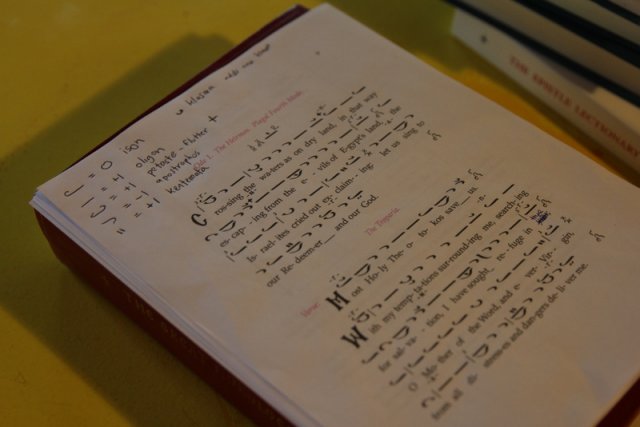 klasma adds one beat
= 0 ison
= +1 oligon
= +1 petaste - flutter +
= -1 apostrophos
= +1 kentemata
Ode 1. The Heirmos. Plagal Fourth Mode.
Crossing the waters as on dry land, in that way
escaping from the e- vils of Egypt's land, the
Israelites cried out exclaiming: let us sing to
our Re-deem-er__ and our God.
The Troparia.
Most Ho-ly The-o- to-kos save__ us.
With my temp-ta-tions sur-round-ing me, search-ing
for sal-va- tion, I have sought__ re-fuge in
O Mo-ther of the Word, and e- ver-Vir- gin,
from all dis- stresses and dangers de-li-ver me.
THE EPISTLE LECTIONARY